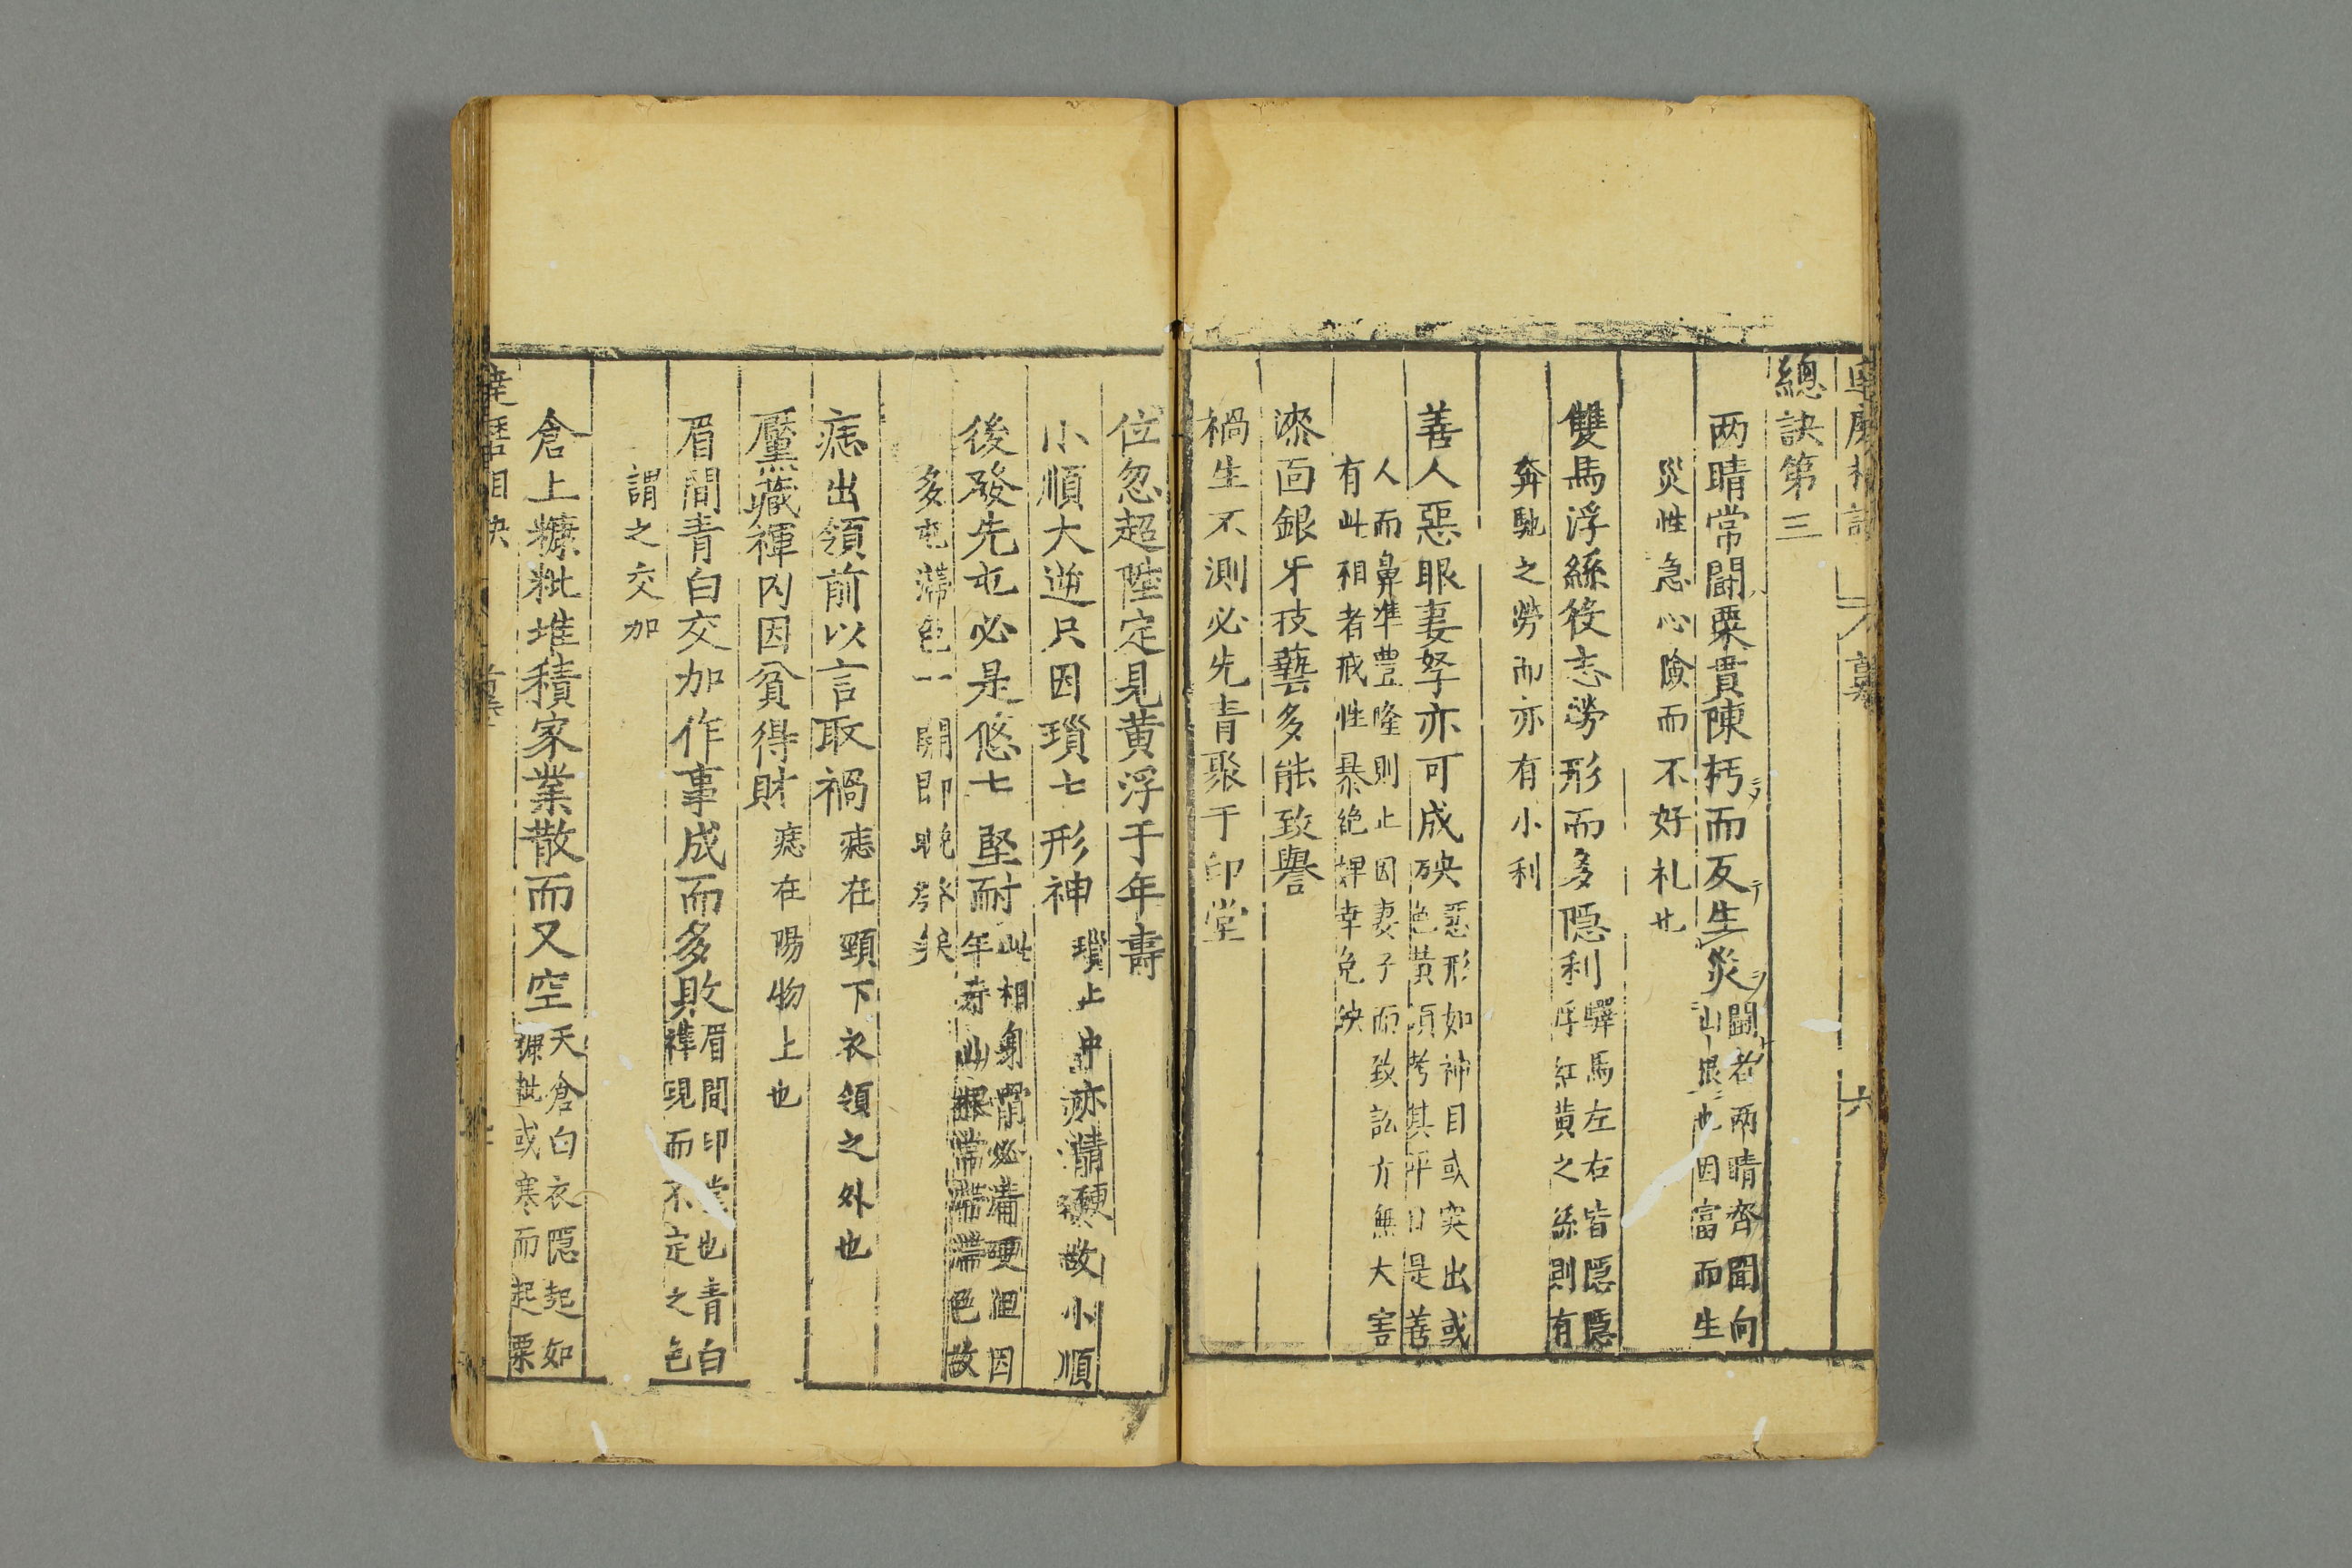 總訣第三
两睛常鬪粟貫陳朽而反生災鬪者两睛齊聞向
山根也因富而生
災性急心險而不好礼也
雙馬浮絲役志勞形而多隱利驛馬左右皆隱隱
浮紅黄之絲則有
奔馳之勞而亦有小利
善人惡眼妻孥亦可成殃惡形如神目或突出或
色黄須考其平日是善
人而鼻準豐隆則止因妻子而致訟亦無大害
有此相者戒性暴絶婢幸免殃
漆面銀牙技藝多能致譽
禍生不測必先青聚于印堂
位忽超陞定見黄浮于年壽
小順大逆只因瑣七形神瑣止中亦故小順
後發先屯必是悠七堅耐此相身必因
年壽山根常滯色故
多屯滯色一開即晩發矣
痣出領前以言取禍痣在頸下衣領之外也
黶藏褌内因貧得財痣在陽物上也
眉間青白交加作事成而多敗眉間印堂也青白
現而不定之色
謂之交加
倉上糠粃堆積家業散而又空天倉白衣隱起如
糠粃或寒而起粟